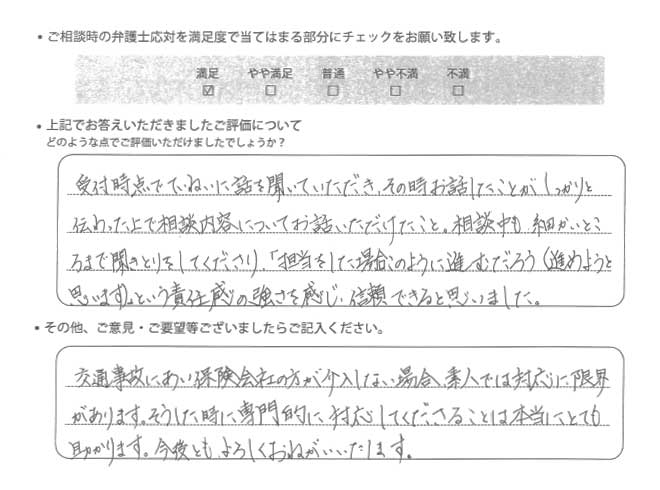 ・ご相談時の弁護士応対を満足度で当てはまる部分にチェックをお願い致します。
満足 やや満足 普通 やや不満 不満
☑ ☐ ☐ ☐ ☐
・上記でお答えいただきましたご評価について
どのような点でご評価いただけましたでしょうか？
受付時点でていねいに話を聞いていただき、その時お話したことがしっかりと
伝わった上で相談内容についてお話いただけたこと。相談中も細かいとこ
ろまで聞きとりをしてくださり、「担当をした場合このように進むだろう（進めようと
思います）」という責任感の強さを感じ、信頼できると思いました。
・その他、ご意見・ご要望等ございましたらご記入ください。
交通事故にあい保険会社の方が介入しない場合、素人では対応に限界
があります。そうした時に専門的に対応してくださることは本当にとても
助かります。今後ともよろしくおねがいいたします。